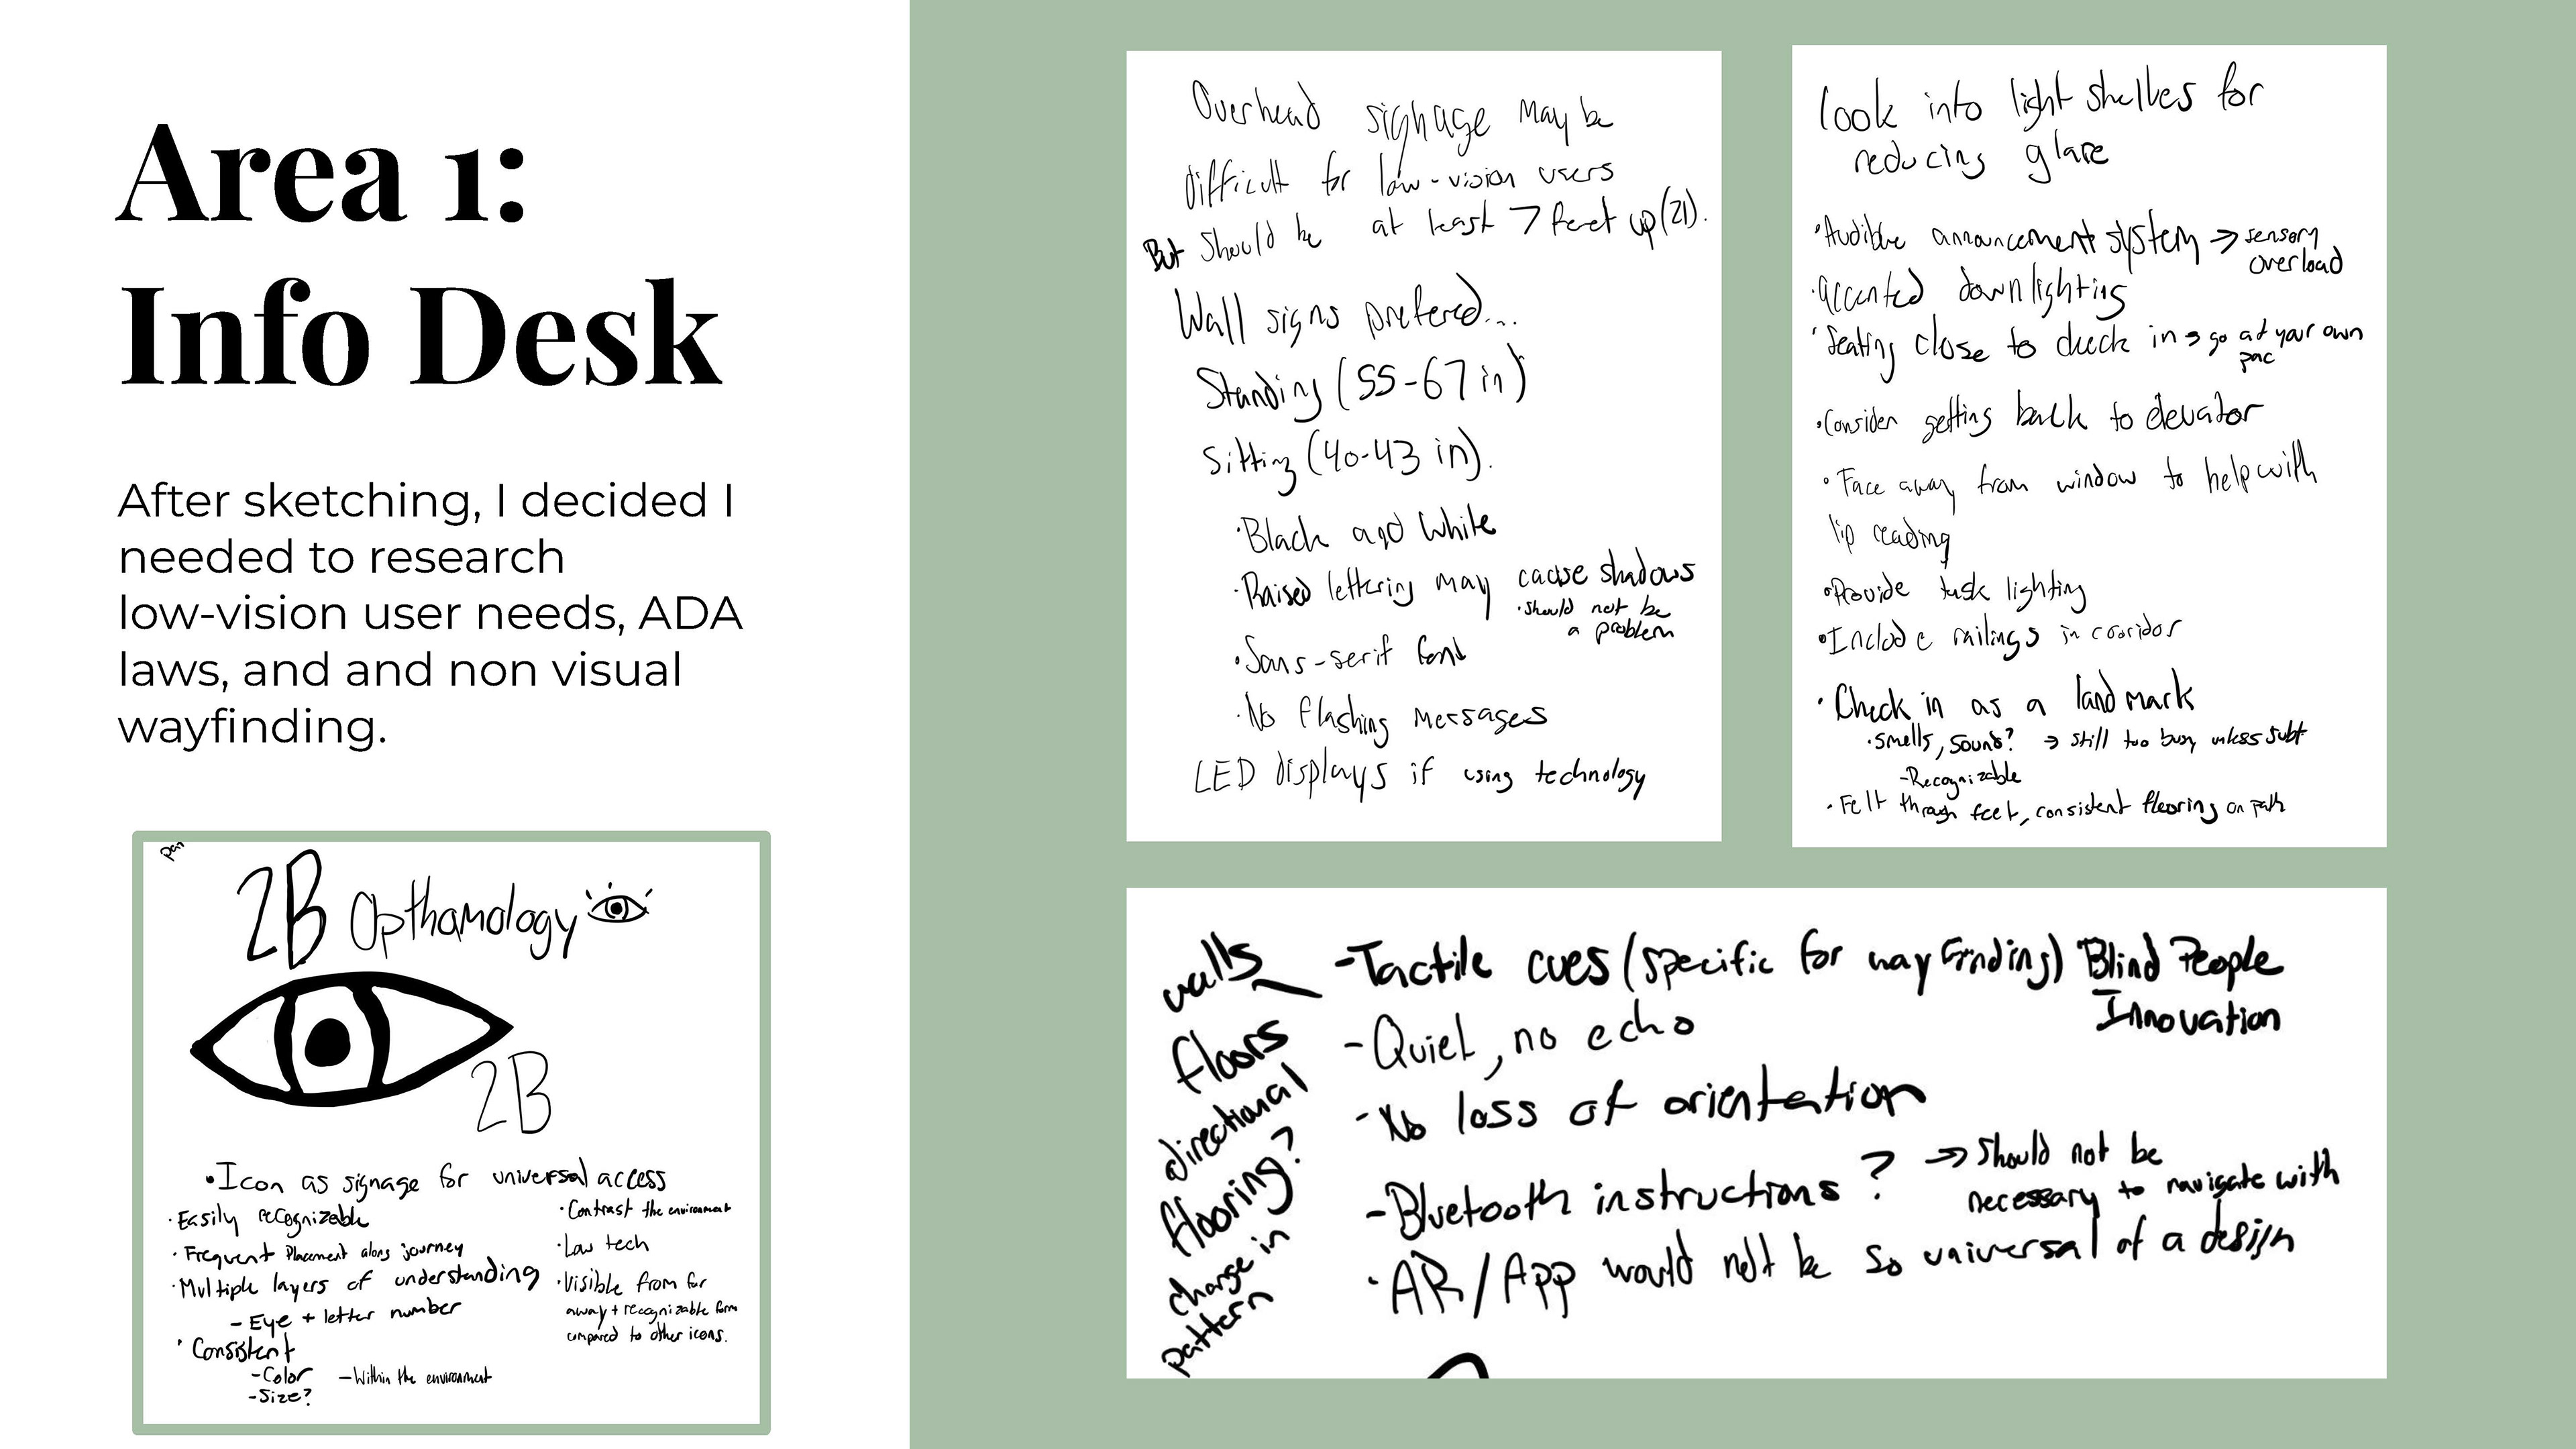 Area 1:
Info Desk
After sketching, I decided I
needed to research
low-vision user needs, ADA
laws, and and non visual
wayfinding.
2B Opthamology
2B
•Icon as signage for universal access
•Easily recognizable
•Frequent Placement along journey
•Multiple layers of understanding
-Eye + letter number
•Consistent
-Color -Within the environment
-Size?
•Contrast the environment
•Low tech
•Visible from far
away + recognizable form
compared to other icons.
Overhead signage may be
difficult for low-vision users
But Should be at least 7 feet up (21).
Wall signs prefered...
Standing (55-67 in)
Sitting (40-43 in).
•Black and White
•Raised lettering may cause shadows
•should not be
a problem
•Sans-serif font
•No flashing messages
LED displays if using technology
look into light shelves for
reducing glare
•Audible announcement system → sensory
overload
•accented downlighting
•Seating close to check in → go at your own
pac
•Consider getting back to elevator
•Face away from window to help with
lip reading
•Provide task lighting
•Include railings in corridor
•Check in as a landmark
•smells, sound? → still too busy unless subt
-Recognizable
•Felt through feet, consistent flooring on path
walls
floors
directional
flooring?
change in
pattern
-Tactile cues (specific for wayfinding) Blind People
Innovation
-Quiet, no echo
-No loss of orientation
-Bluetooth instructions? → Should not be
necessary to navigate with
•AR/App would not be so universal of a design